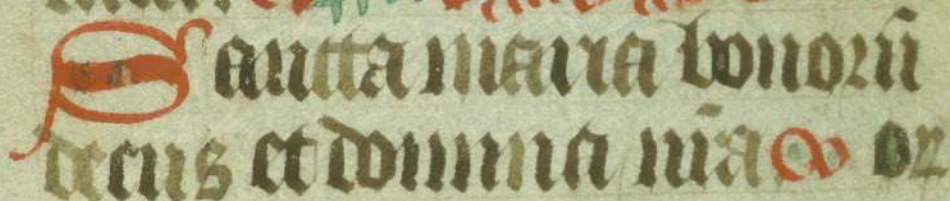 Sancta maria bonorū
decus et domina nr̄a or